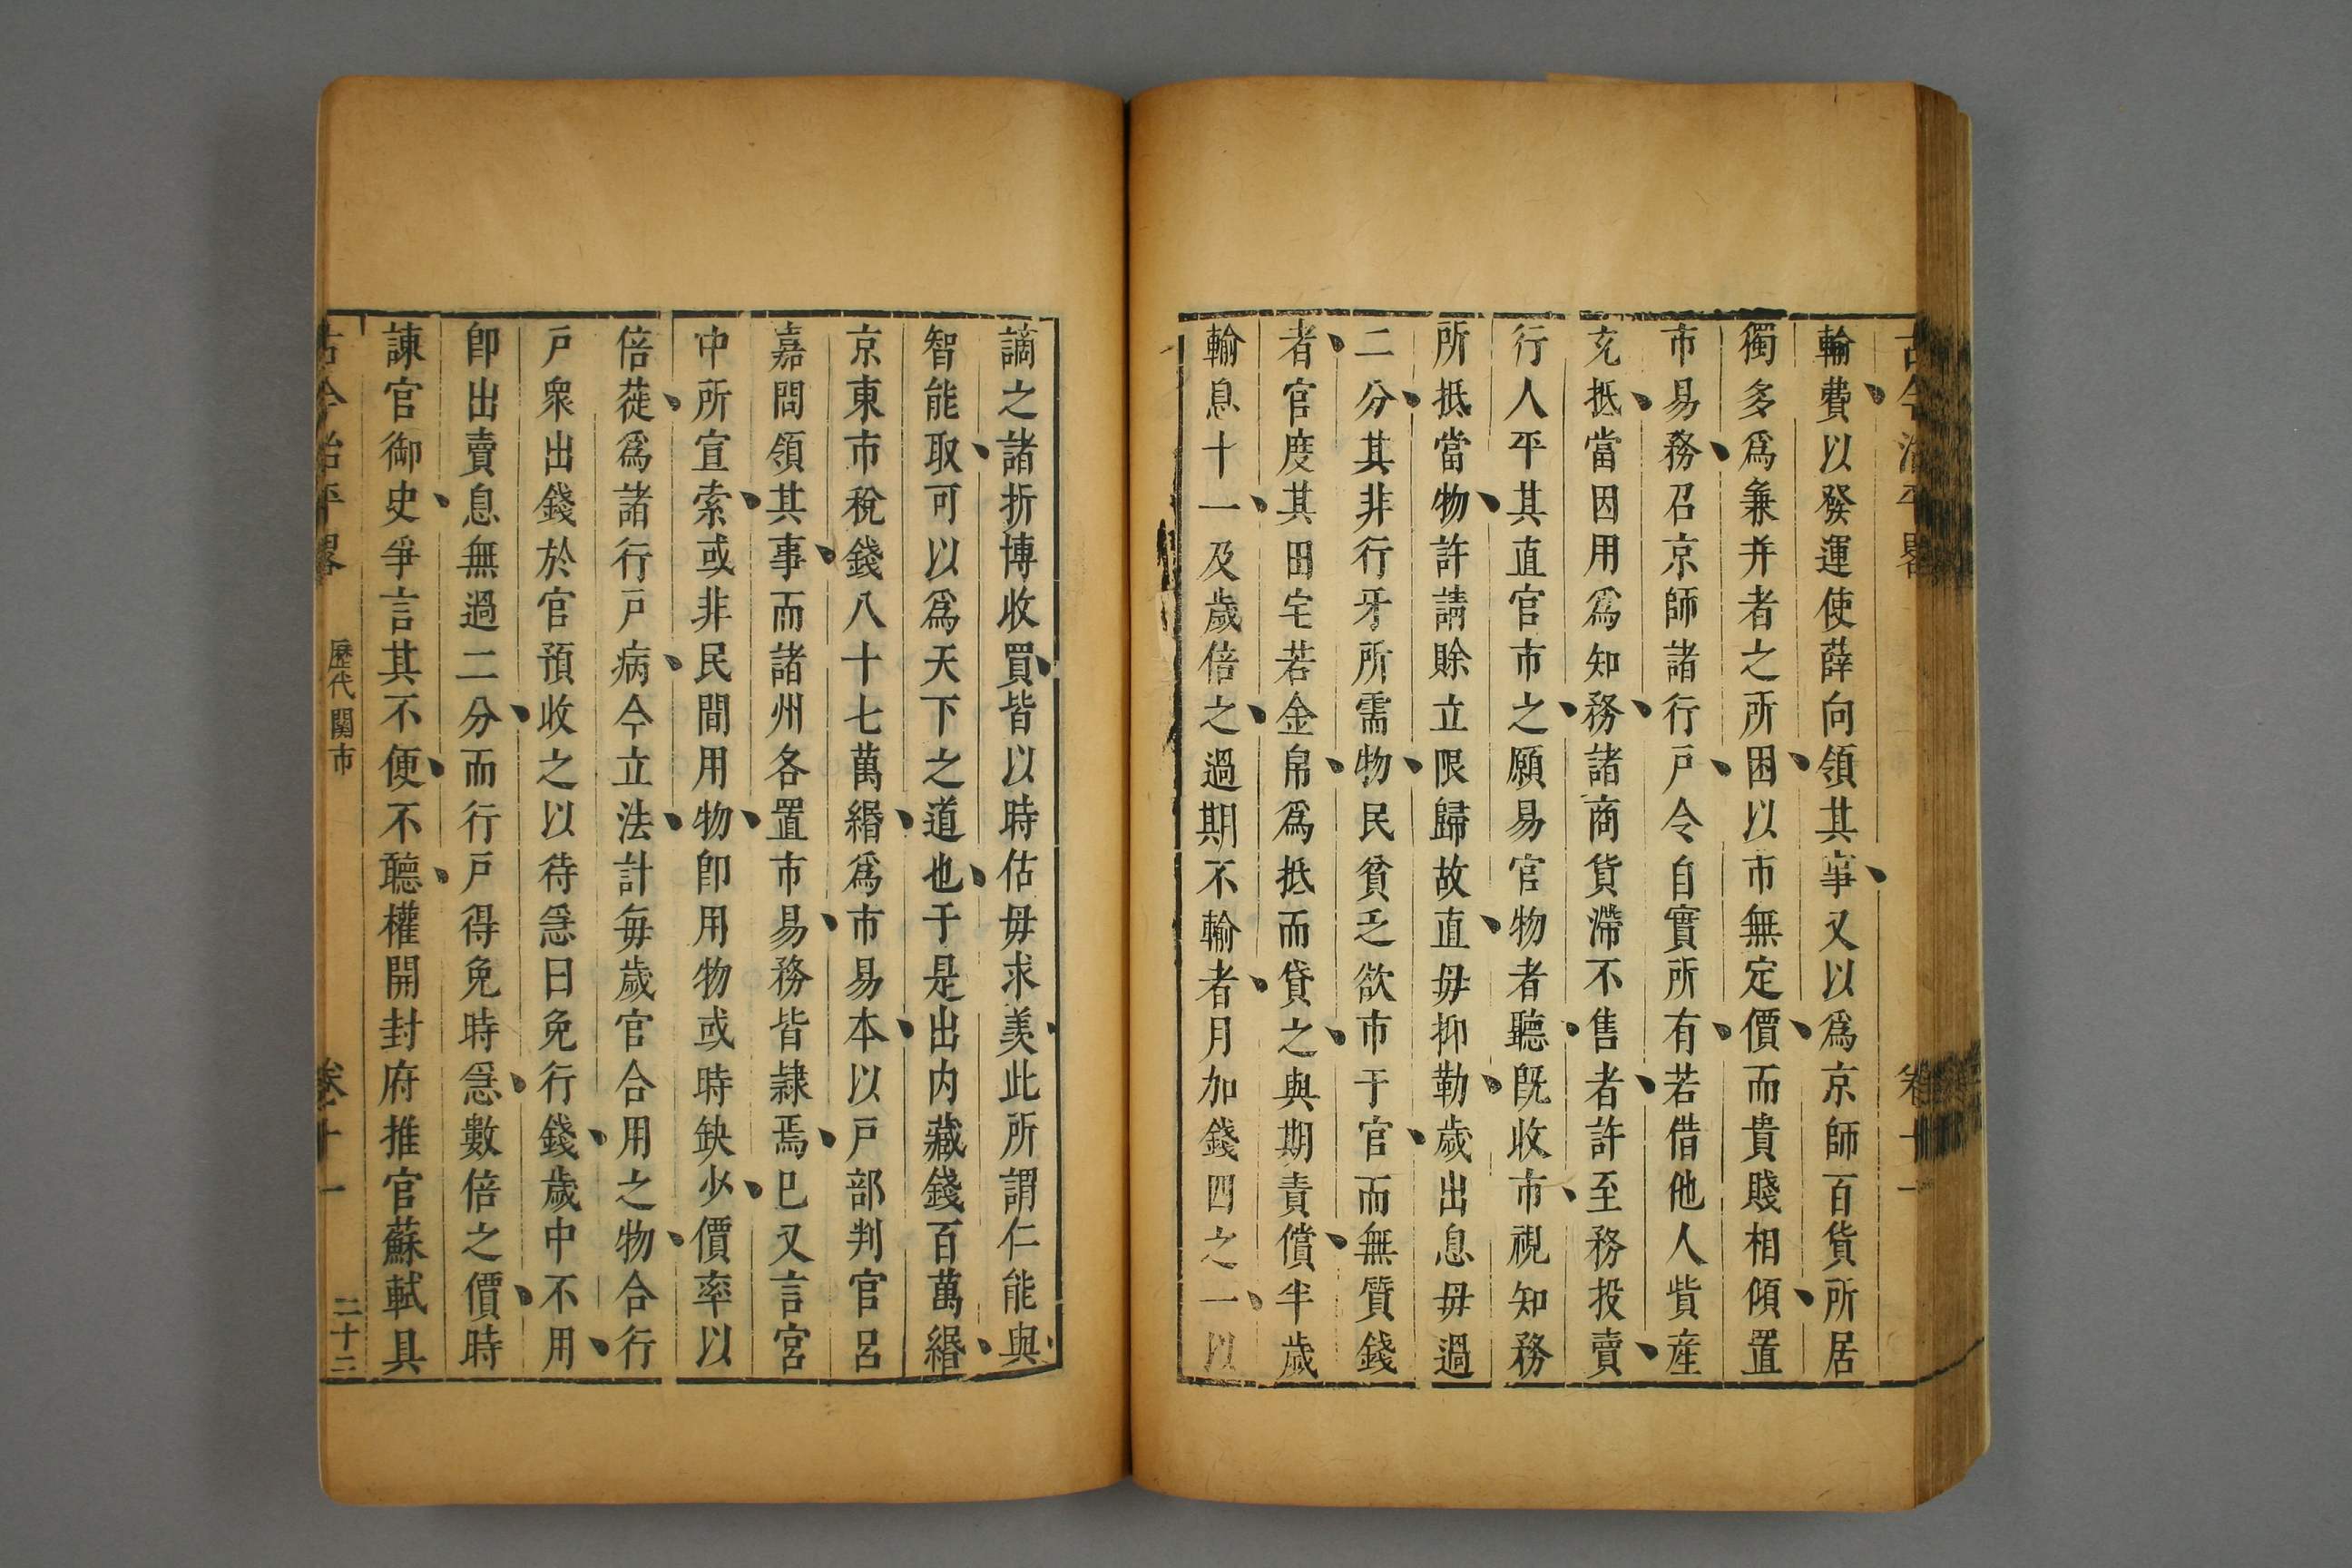 古今治平畧 卷十一
輸費以發運使薛向領其事又以爲京師百貨所居
獨多爲兼并者之所困以市無定價而貴賤相傾置
市易務召京師諸行戸令自實所有若借他人貲産
充抵當因用爲知務諸商貨滯不售者許至務投賣
行人平其直官市之願易官物者聽旣收市視知務
所抵當物許請賒立限歸故直毋抑勒歲出息毋過
二分其非行牙所需物民貧乏欲市于官而無質錢
者官度其田宅若金帛爲抵而貸之與期責償半歲
輸息十一及歲倍之過期不輸者月加錢四之一以
謫之諸折博收買皆以時估毋求美此所謂仁能與
智能取可以爲天下之道也于是出内藏錢百萬緡
京東市稅錢八十七萬緡爲市易本以戸部判官呂
嘉問領其事而諸州各置市易務皆隸焉巳又言宮
中所宣索或非民間用物卽用物或時缺少價率以
倍蓰爲諸行戸病今立法計毎歲官合用之物合行
戸衆出錢於官預收之以待急曰免行錢歲中不用
卽出賣息無過二分而行戸得免時急數倍之價時
諫官御史爭言其不便不聽權開封府推官蘇軾具
古今治平畧 歷代關市 卷十一 二十二